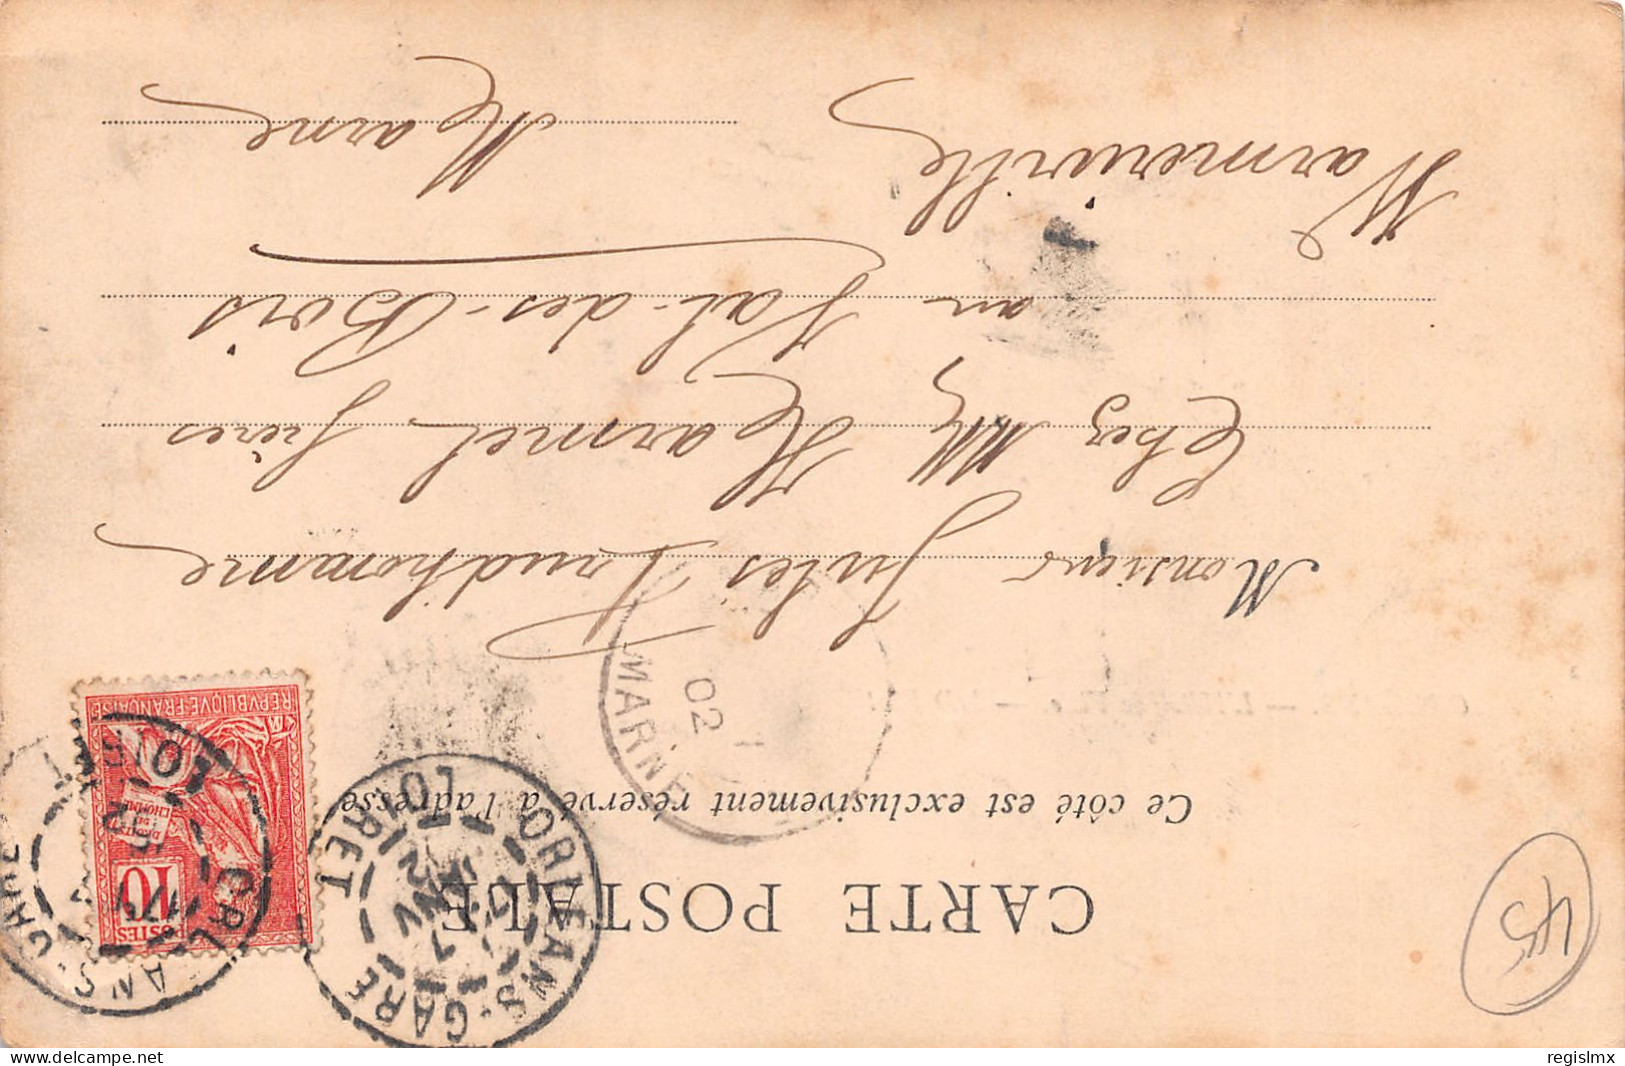 CARTE POSTALE
Ce côté est exclusivement réservé à l'adresse
RÉPVBLIQVE FRANÇAISE
DROITS DE L'HOMME
10
POSTES
ORLÉANS-GARE
LOIRET
ORLÉANS-GARE
LOIRET
MARNE
02
Monsieur Jules Prudhomme
Chez MM Harmel frères
au Val-des-Bois
Warmeriville
Marne
45
delcampe.net
regislmx